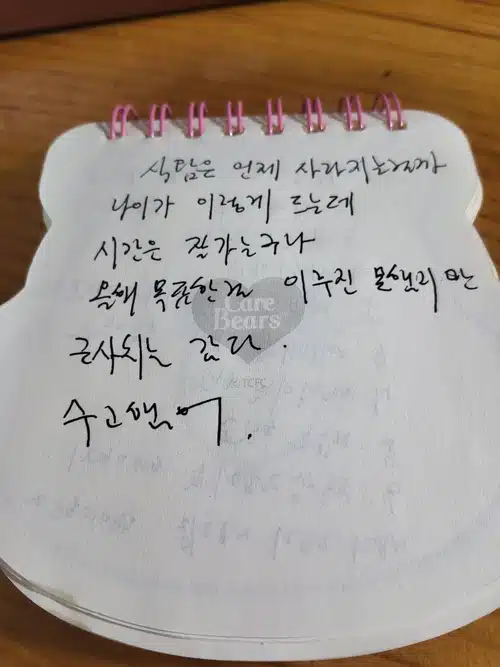 식탐은 언제 사라지는걸까
나이가 이렇게 드는데
시간은 잘가는구나
올해 목표한걸 이루진 못했지만
근사치는 갔다.
수고했어.
Care
Bears
TCFC